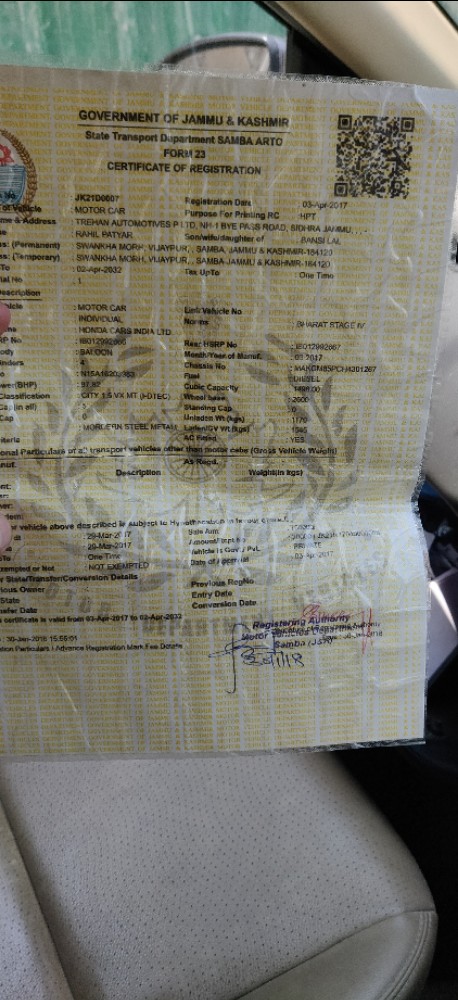 GOVERNMENT OF JAMMU & KASHMIR
State Transport Department SAMBA ARTO
FORM 23
CERTIFICATE OF REGISTRATION
: JK21D0007 Registration Date : 03-Apr-2017
of Vehicle : MOTOR CAR Purpose For Printing RC : HPT
me & Address : TREHAN AUTOMOTIVES P LTD, NH-1 BYE PASS ROAD, SIDHRA JAMMU, , , -
: RAHIL PATYAR Son/wife/daughter of : BANSI LAL
ss: (Permanent) : SWANKHA MORH, VIJAYPUR, , SAMBA, JAMMU & KASHMIR-184120
ss: (Temporary) : SWANKHA MORH, VIJAYPUR, , SAMBA JAMMU & KASHMIR-184120
To : 02-Apr-2032 Tax UpTo : One Time
rial No : 1
escription
hicle : MOTOR CAR Link Vehicle No
: INDIVIDUAL Norms : BHARAT STAGE IV
: HONDA CARS INDIA LTD
RP No Rear HSRP No
ody : SALOON Month/Year of Manuf. : 03 2017
inders : 4 Chassis No
Fuel : DIESEL
wer(BHP) : 97.92 Cubic Capacity
Classification : CITY 1.5 VX MT (i-DTEC) Wheel base : 2600
Cap (in all) Standing Cap : 0
Cap Unladen Wt (kgs) : 1170
Laden/GV Wt (kgs) : 1545
: MORDERN STEEL METAL AC Fitted : YES
iteria
onal Particulars of all transport vehicles other than motor cabs (Gross Vehicle Weight)
anuf. As Regd.
Description Weight(in kgs)
r vehicle above described is subject to Hypothecation in favour of
: 29-Mar-2017 Sale Amt
: 29-Mar-2017 Amount/Rcpt No
: One Time Vehicle is Govt./ Pvt. : PRIVATE
xempted or Not : NOT EXEMPTED Date of Approval : 03-Apr-2017
r State/Transfer/Conversion Details
ious Owner Previous RegNo
State Entry Date
nsfer Date Conversion Date
s certificate is valid from 03-Apr-2017 to 02-Apr-2032
: 30-Jan-2018 15:55:01
ation Particulars / Advance Registration Mark Fee Details
Registering Authority
Motor Vehicles Department
Samba (J&K)
30/1/18
MOTOR
DEPARTMENT